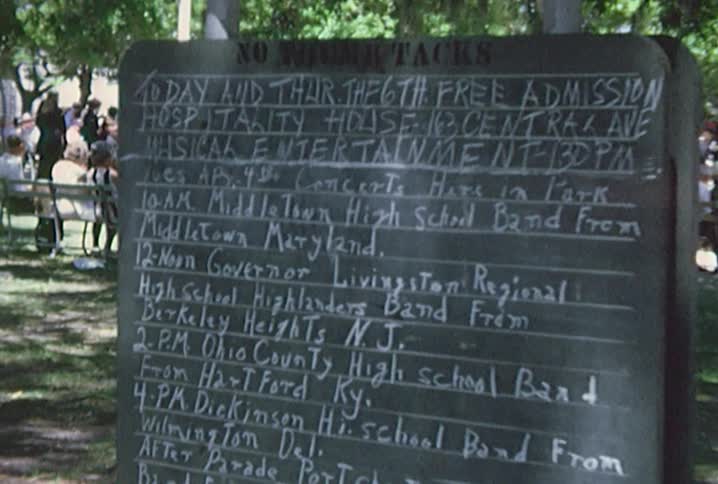 NO TACKS
TODAY AND THUR. THE 6TH. FREE ADMISSION
HOSPITALITY HOUSE-163 CENTRAL AVE
MUSICAL ENTERTAINMENT-130PM
Tues AP. 4th Concerts Here in Park
10 A.M. Middletown High School Band From
Middletown Maryland.
12-Noon Governor Livingston Regional
High School Highlanders Band From
Berkeley Heights N.J.
2-P.M. Ohio County High School Band
From Hartford Ky.
4-P.M. Dickinson Hi-School Band From
Wilmington Del.
After Parade Port
Band